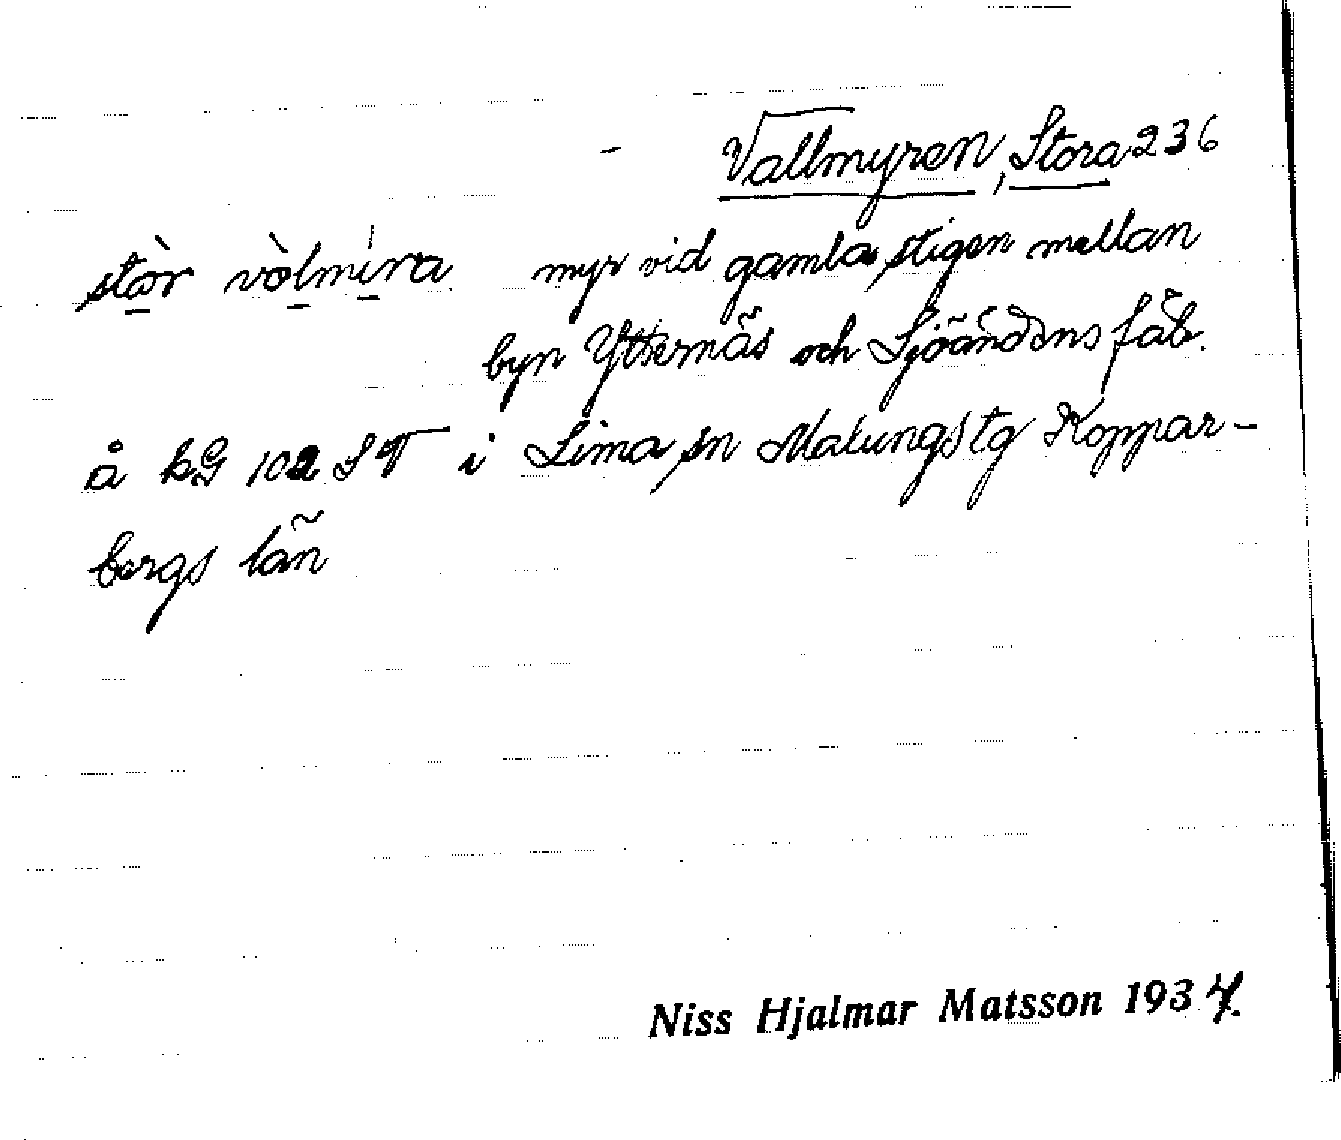 Vallmyren, Stora 236
stòr vòlmíra myr vid gamla stigen mellan
byn Ytternäs och Sjöändens fäb.
å kG 102 ST i Lima sn Malungs tg Koppar-
bergs län
Niss Hjalmar Matsson 1934.